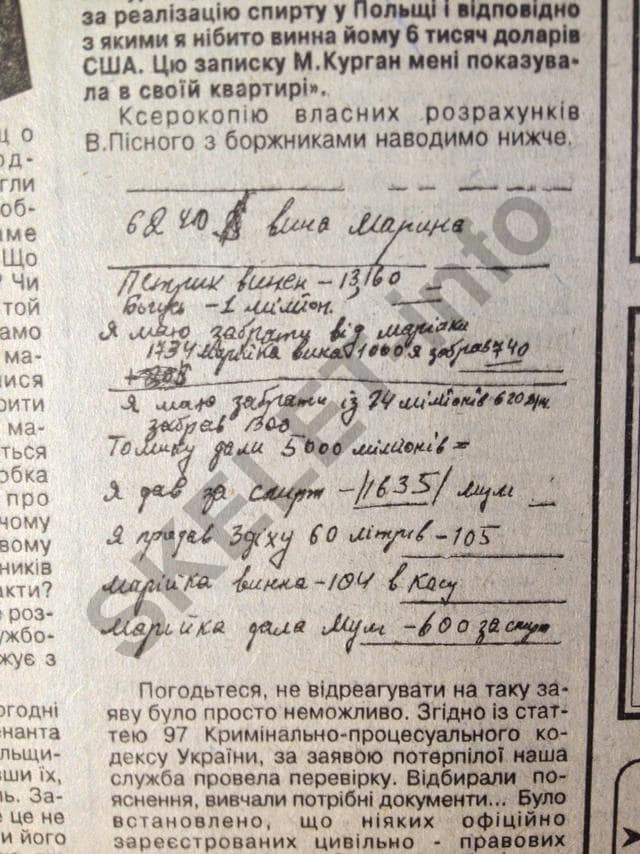 за реалізацію спирту у Польщі і відповідно
з якими я нібито винна йому 6 тисяч доларів
США. Цю записку М.Курган мені показува-
ла в своїй квартирі».
Ксерокопію власних розрахунків
В.Пісного з боржниками наводимо нижче.
6240 $ вина Марина
Петрик винен - 13,160
- 1 мілімон.
Я маю забрати від марійки
1734 Марійка вина 1000 я забрав 740
Я маю забрати із 74 мілімонів 620
забрав 300
Томику дали 5000 мілімонів =
Я дав за спирт - 1635 мум
Я продав Здіху 60 літрив - 105
Марійка винна - 104 в касу
Марійка дала Мум - 600 за спирт
Погодьтеся, не відреагувати на таку за-
яву було просто неможливо. Згідно із стат-
тею 97 Кримінально-процесуального ко-
дексу України, за заявою потерпілої наша
служба провела перевірку. Відбирали по-
яснення, вивчали потрібні документи... Було
встановлено, що ніяких офіційно
зареєстрованих цивільно - правових
що о
од-
гли
об-
аме
Що
? Чи
той
амо
ма-
лися
рити
ма-
ється
обка
про
чому
вому
ників
акти?
роз-
ужбо-
жує з
огодні
енанта
льщи-
вши їх,
ль. За-
е це не
и його
SKELET.info